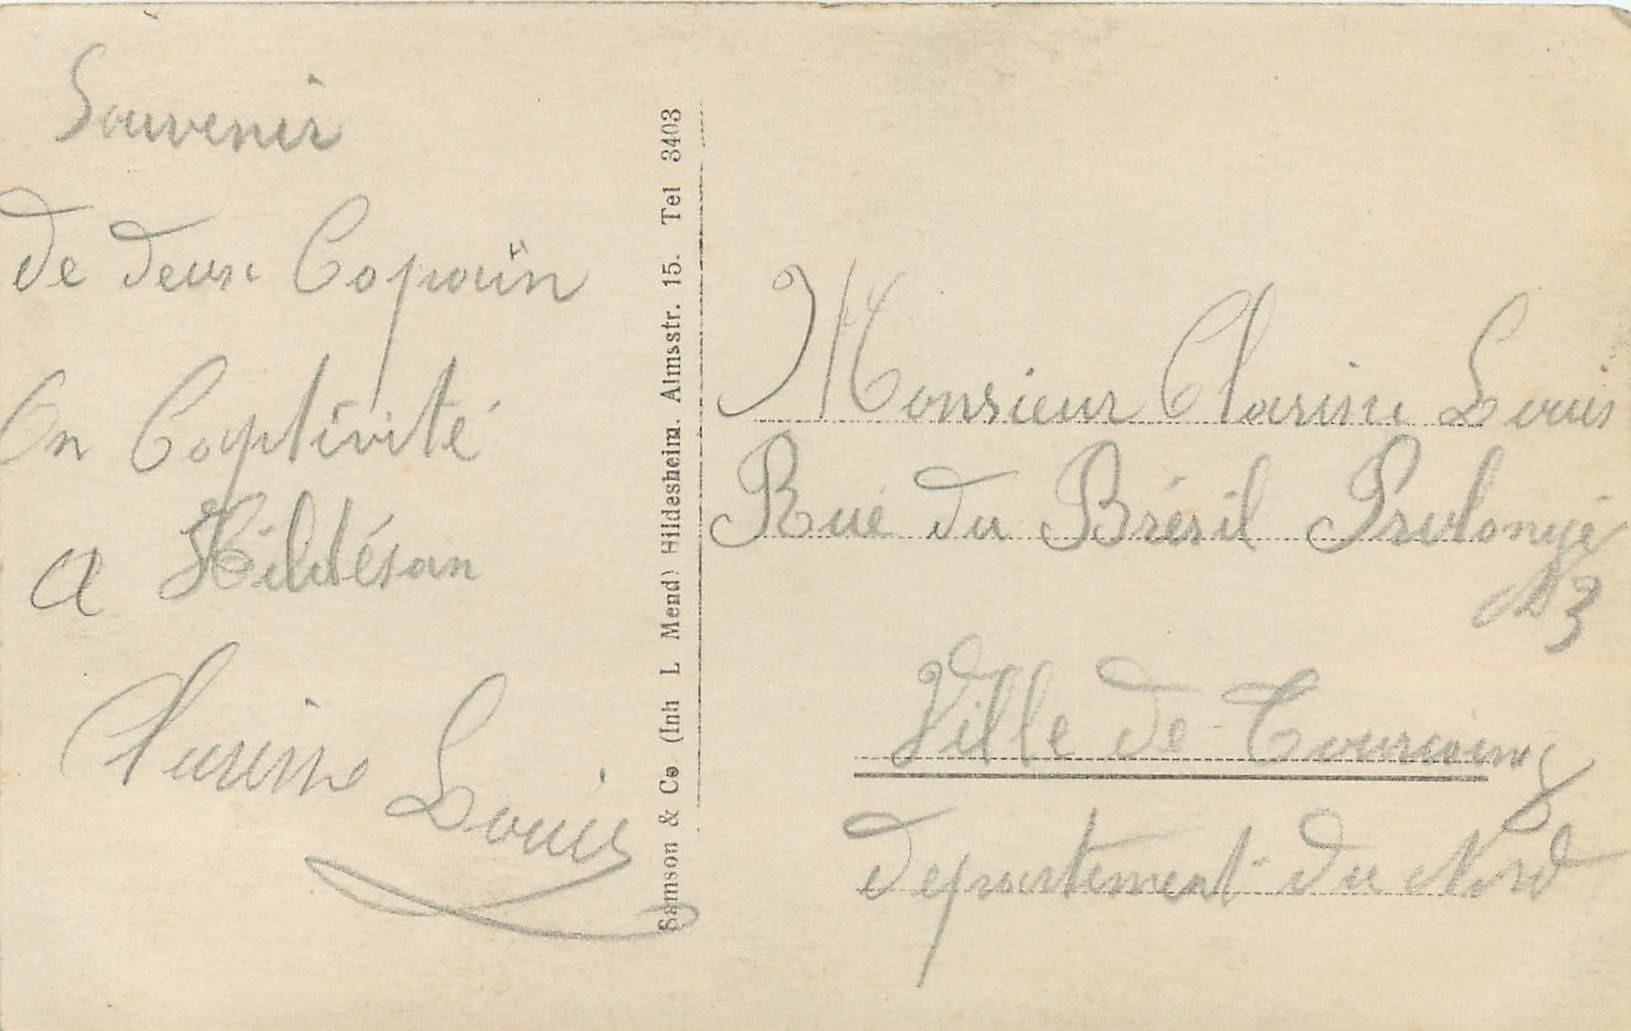 Souvenir
de deux Copain
En Captivité
a Hildésan
Clarisse Louis
Samson & Co (Inh L Mend) Hildesheim. Almsstr. 15. Tel 3403
Monsieur Clarisse Louis
Rue du Brésil Prolongé
N 3
Ville de Tourcoing
Département du Nord